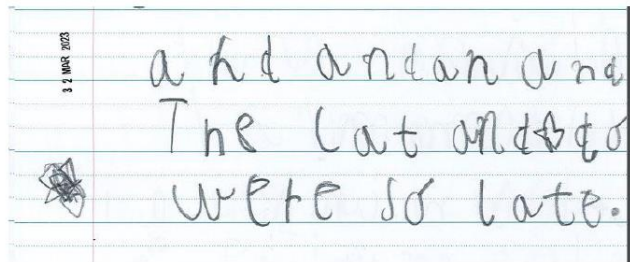 3 2 MAR 2023
and andan and
The Cat and do
were so late.